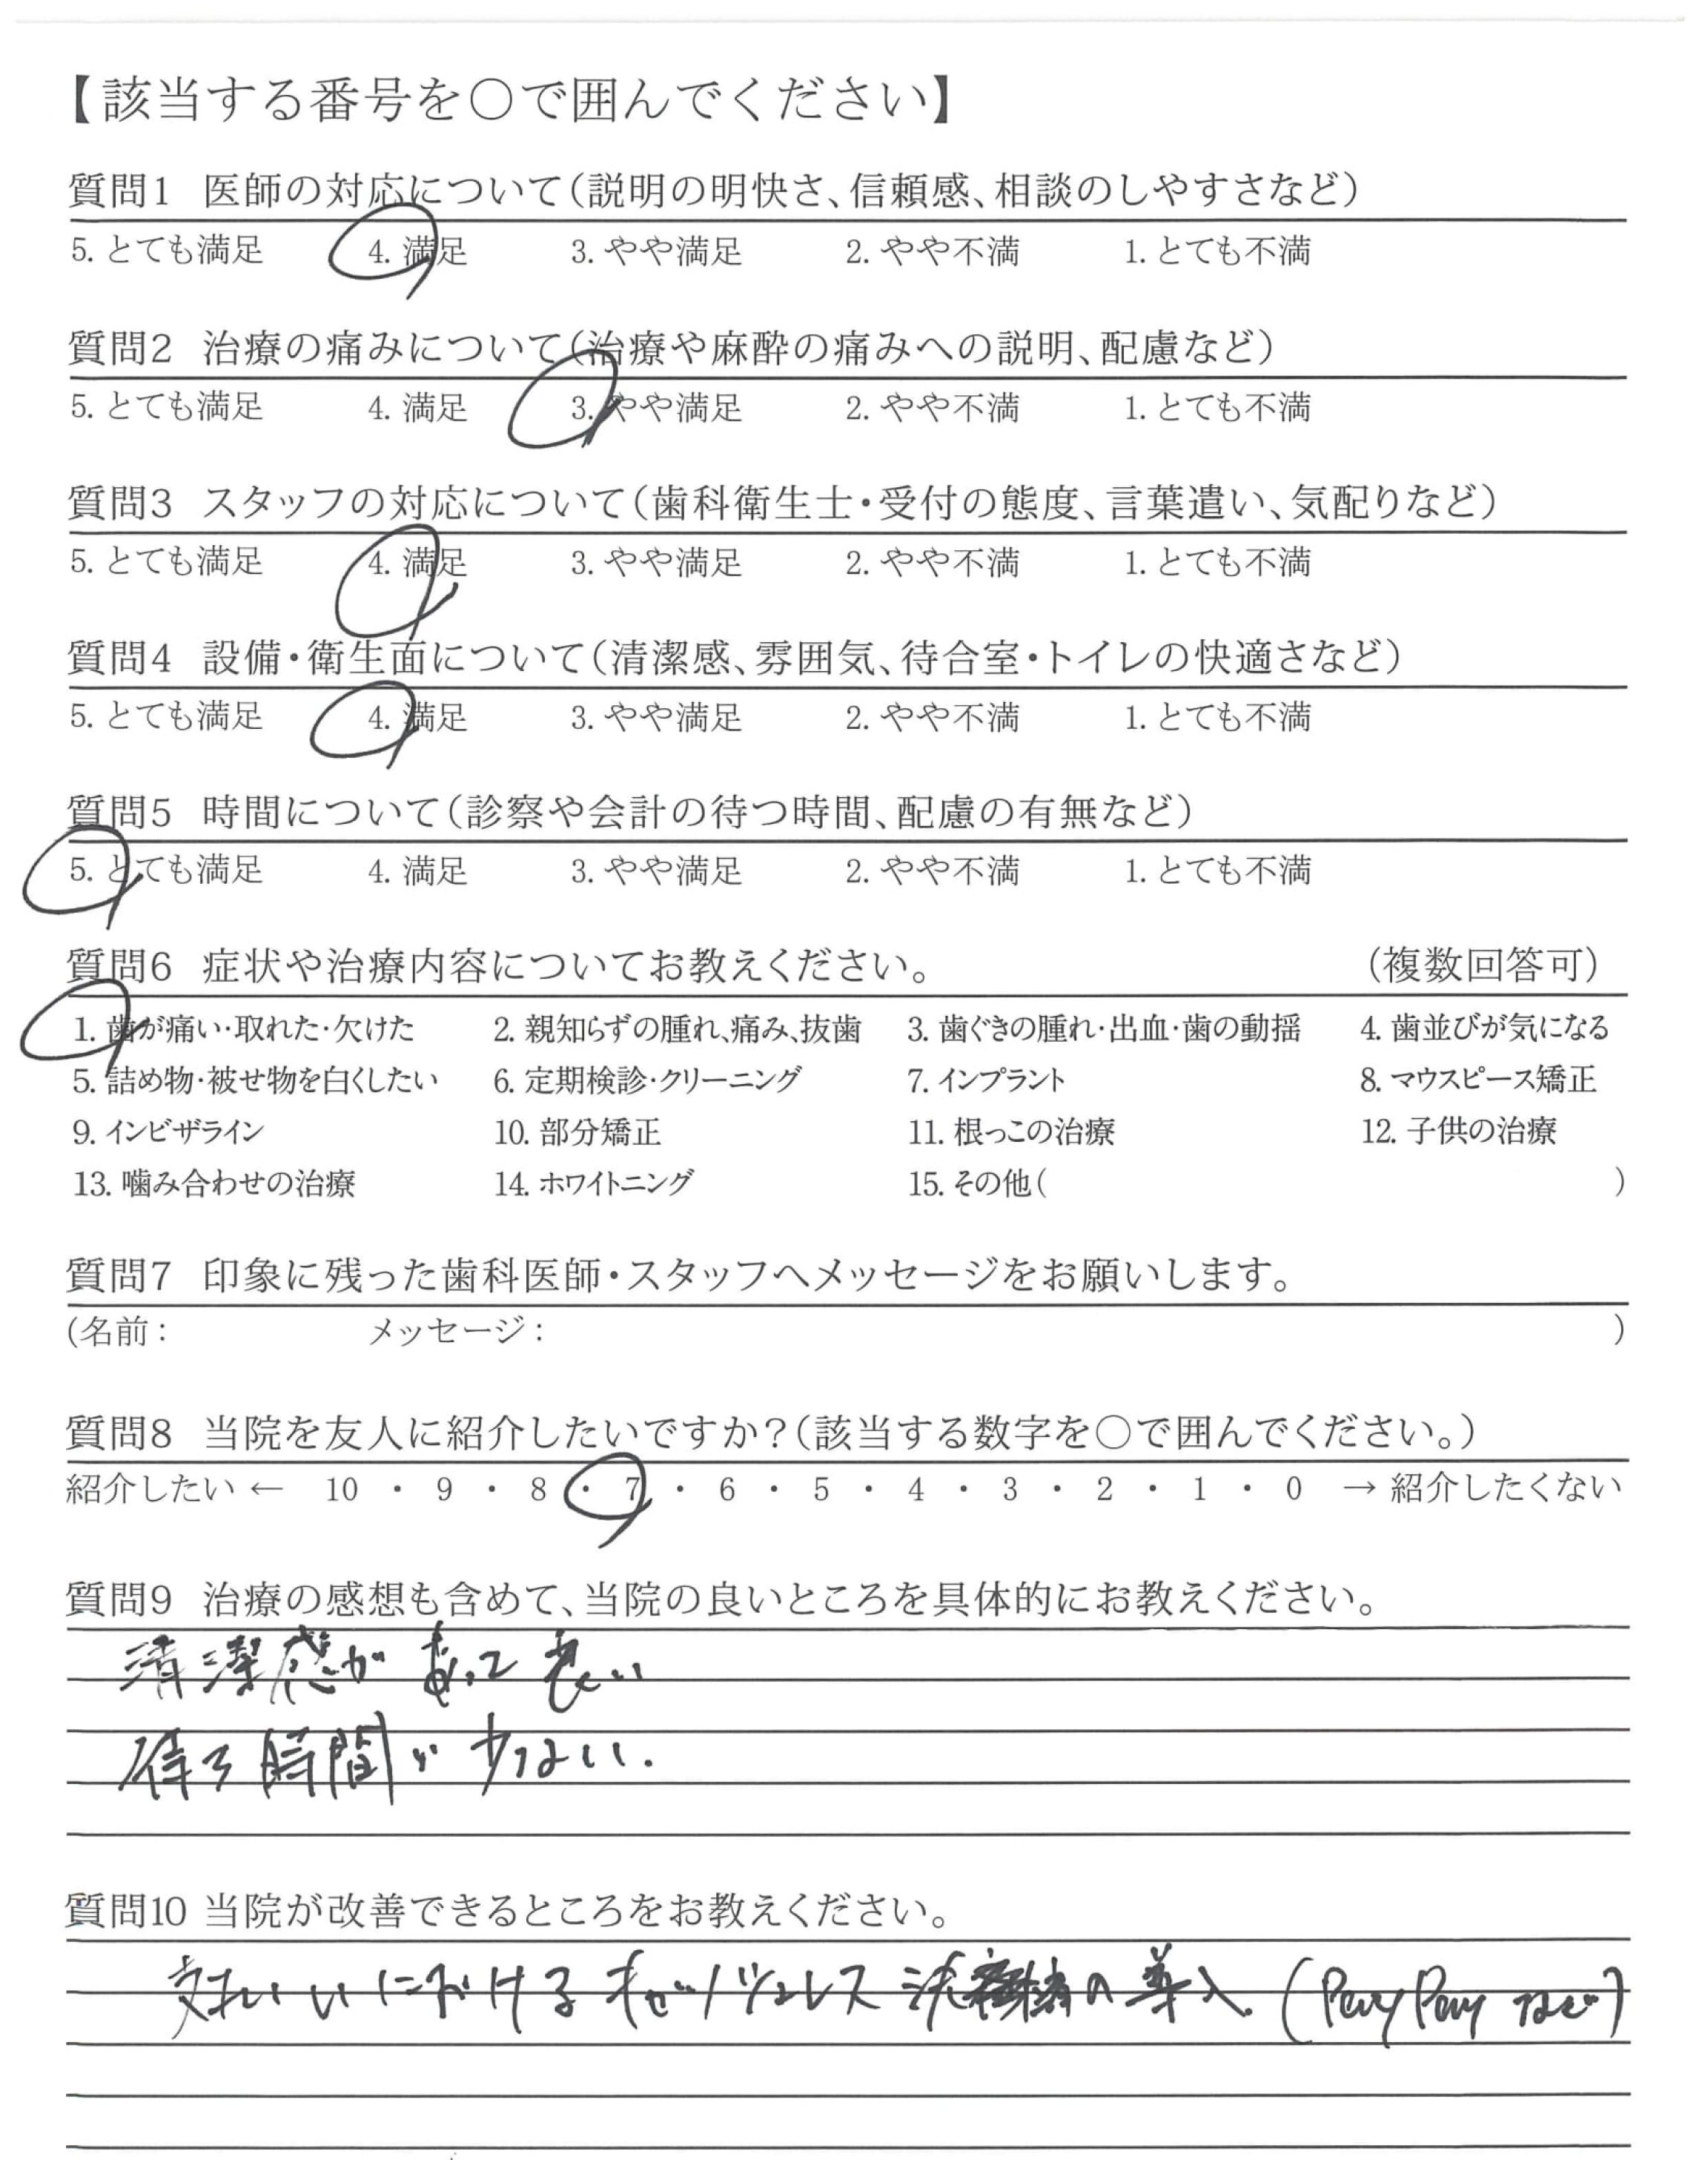 【該当する番号を○で囲んでください】
質問1 医師の対応について(説明の明快さ、信頼感、相談のしやすさなど)
5. とても満足 4. 満足 3. やや満足 2. やや不満 1. とても不満
質問2 治療の痛みについて(治療や麻酔の痛みへの説明、配慮など)
5. とても満足 4. 満足 3. やや満足 2. やや不満 1. とても不満
質問3 スタッフの対応について(歯科衛生士・受付の態度、言葉遣い、気配りなど)
5. とても満足 4. 満足 3. やや満足 2. やや不満 1. とても不満
質問4 設備・衛生面について(清潔感、雰囲気、待合室・トイレの快適さなど)
5. とても満足 4. 満足 3. やや満足 2. やや不満 1. とても不満
質問5 時間について(診察や会計の待つ時間、配慮の有無など)
5. とても満足 4. 満足 3. やや満足 2. やや不満 1. とても不満
質問6 症状や治療内容についてお教えください。 (複数回答可)
1. 歯が痛い・取れた・欠けた 2. 親知らずの腫れ、痛み、抜歯 3. 歯ぐきの腫れ・出血・歯の動揺 4. 歯並びが気になる
5. 詰め物・被せ物を白くしたい 6. 定期検診・クリーニング 7. インプラント 8. マウスピース矯正
9. インビザライン 10. 部分矯正 11. 根っこの治療 12. 子供の治療
13. 噛み合わせの治療 14. ホワイトニング 15. その他( )
質問7 印象に残った歯科医師・スタッフへメッセージをお願いします。
(名前: メッセージ: )
質問8 当院を友人に紹介したいですか?(該当する数字を○で囲んでください。)
紹介したい ← 10 ・ 9 ・ 8 ・ 7 ・ 6 ・ 5 ・ 4 ・ 3 ・ 2 ・ 1 ・ 0 → 紹介したくない
質問9 治療の感想も含めて、当院の良いところを具体的にお教えください。
清潔感があって良い
待つ時間が少ない.
質問10 当院が改善できるところをお教えください。
支払いにおけるキャッシュレス決済の導入. (PayPayなど)